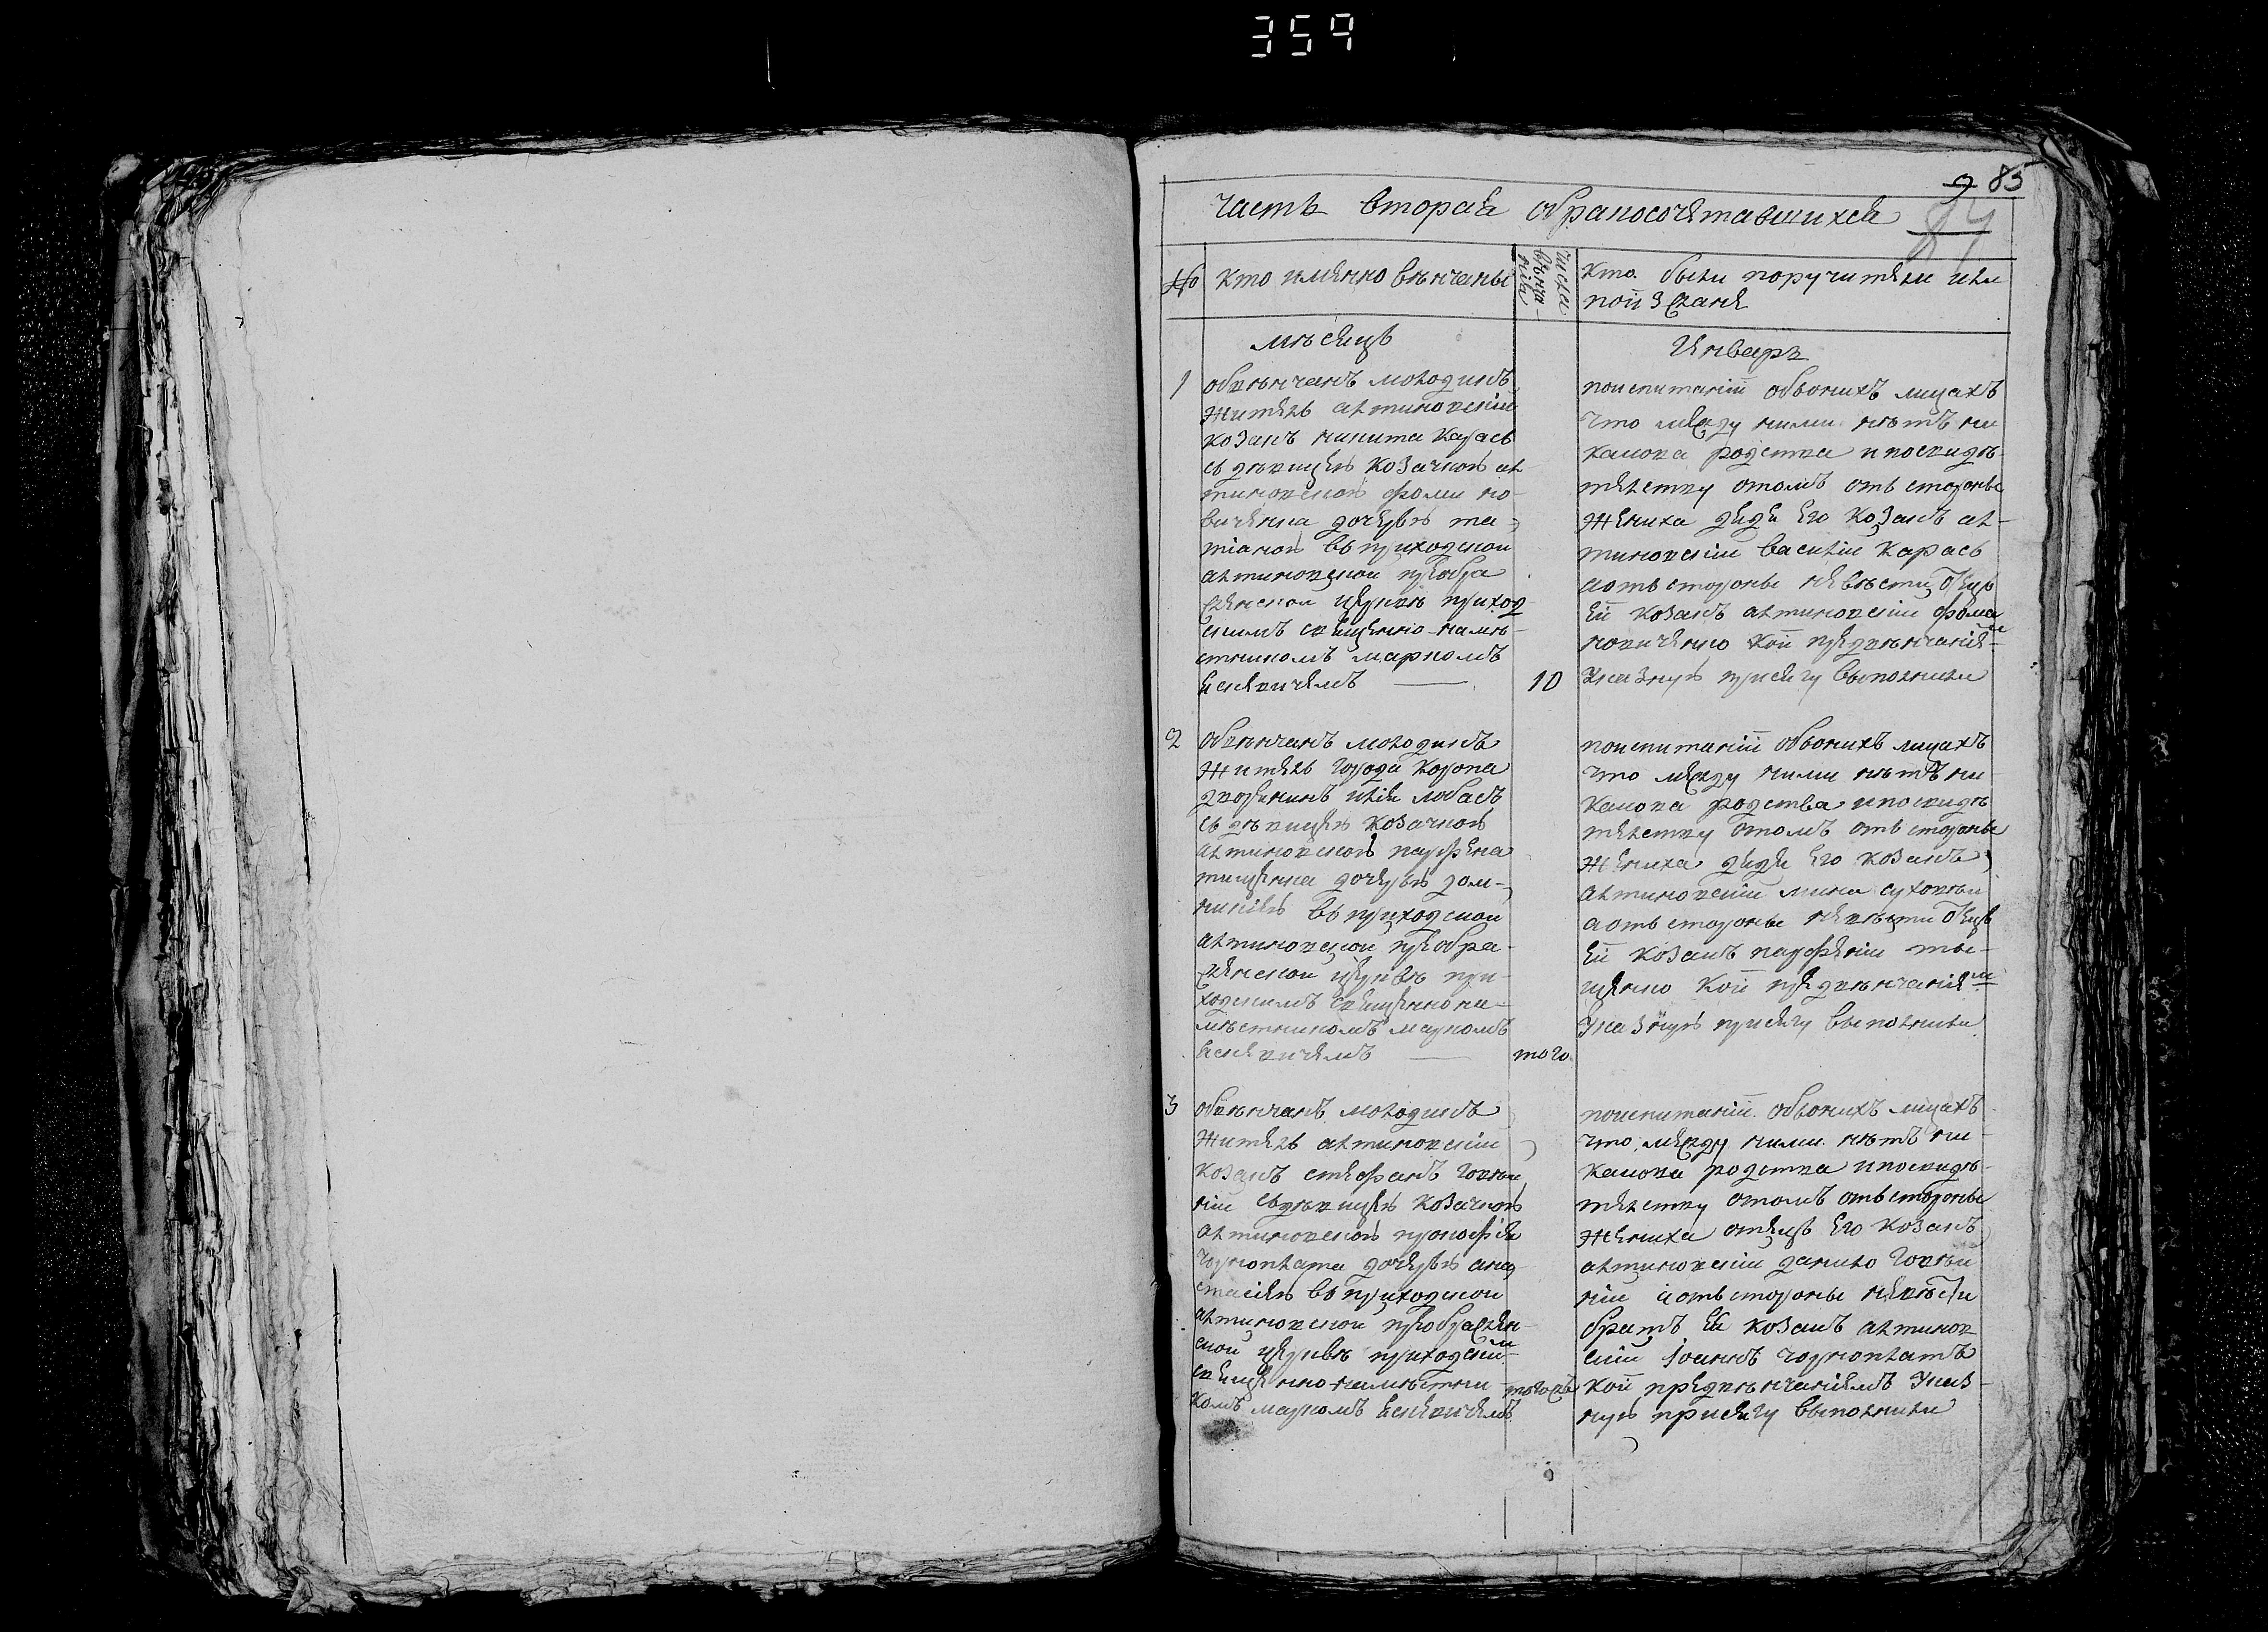 359
9 85
84
часть вторая обракосочетавшихся
№ кто именно венчаны
числа венчанія
кто были поручители или поизъ
месяцъ
Январь
1 обвѣнчанъ молодикъ
житель алтиновскій
козакъ никита Карась
съ дѣвицею козачкою ал-
тиновскою фоми но-
виченка дочерью та-
тіаною въ приходской
алтиновской преобра
женской церкви приход
скимъ священно-намѣ-
стникомъ маркомъ
10
поиспитаніи обьонихъ лицахъ
что между ними нѣтъ ни
какова родства и посвидѣ-
телству отомъ отъ стороны
жениха дядя его козакъ ал-
тиновскій василій Карась
аотъ стороны невѣсти отецъ
ей козакъ алтиновскій фома
новиченко кой предвѣнчаніемъ
указную присягу выполнили
2 Обвѣнчанъ молодикъ
житель города Коропа
дворянинъ илія лобасъ
съ дѣвицею козачкою
алтиновскою парфена
тищенка дочерью дом-
никіею въ приходской
алтиновской преобра-
женской церквѣ при-
ходскимъ священнона-
мѣстникомъ маркомъ
того
поиспитаніи обьонихъ лицахъ
что между ними нѣтъ ни
какова родства и посвидѣ
телству отомъ отъ стороны
жениха дядя его козакъ
алтиновскій мина
аотъ стороны невѣсти отецъ
ей козакъ парфеній ти-
щенко кой предвѣнчаніемъ
указную присягу выполнили
3 обвѣнчанъ молодикъ
житель алтиновскій
козакъ стефанъ
съдѣвицею козачкою
алтиновскою прокофія
дочерью анас
тасіею въ приходской
алтиновской преображен-
ской церквѣ приходским
священно-намѣстни-
комъ маркомъ
тогожъ
поиспитаніи обьонихъ лицахъ
что между ними нѣтъ ни-
какова родства и посвидѣ-
телству отомъ отъ стороны
жениха отецъ его козакъ
алтиновскій данило
аотъ стороны невѣсти
братъ ея козакъ алтинов
скій Іоаннъ
кой предвѣнчаніемъ указ-
ную присягу выполнили